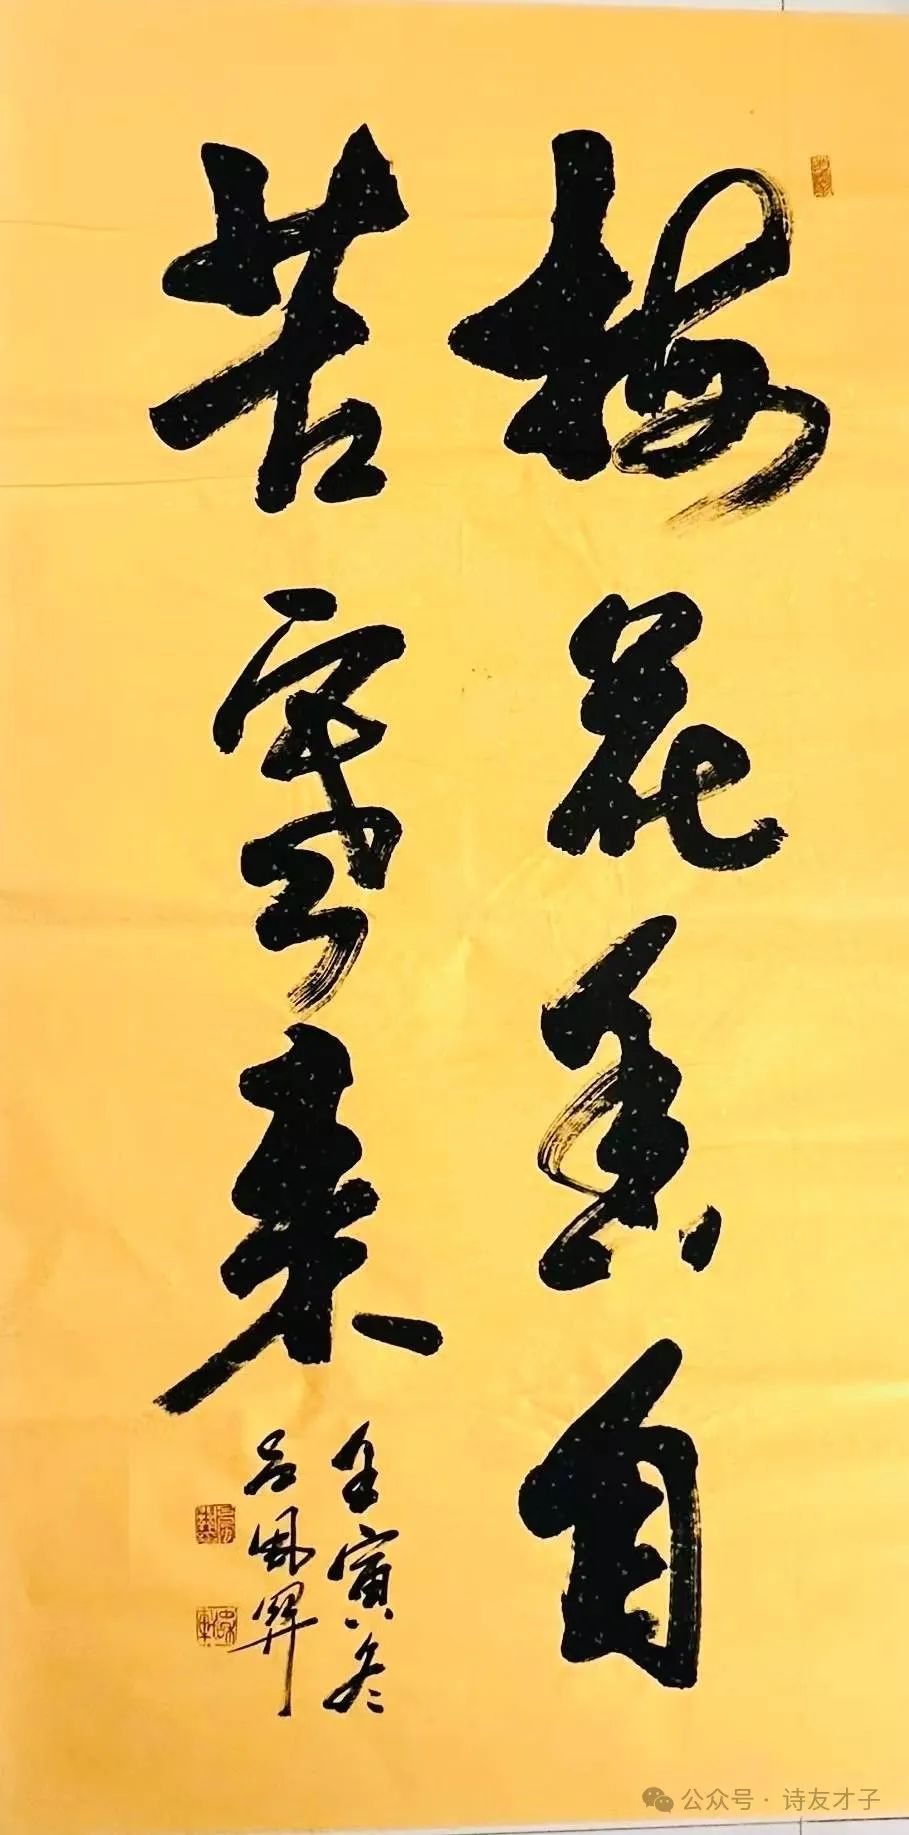 梅花香自
苦寒来
壬寅冬
吕
公众号·诗友才子